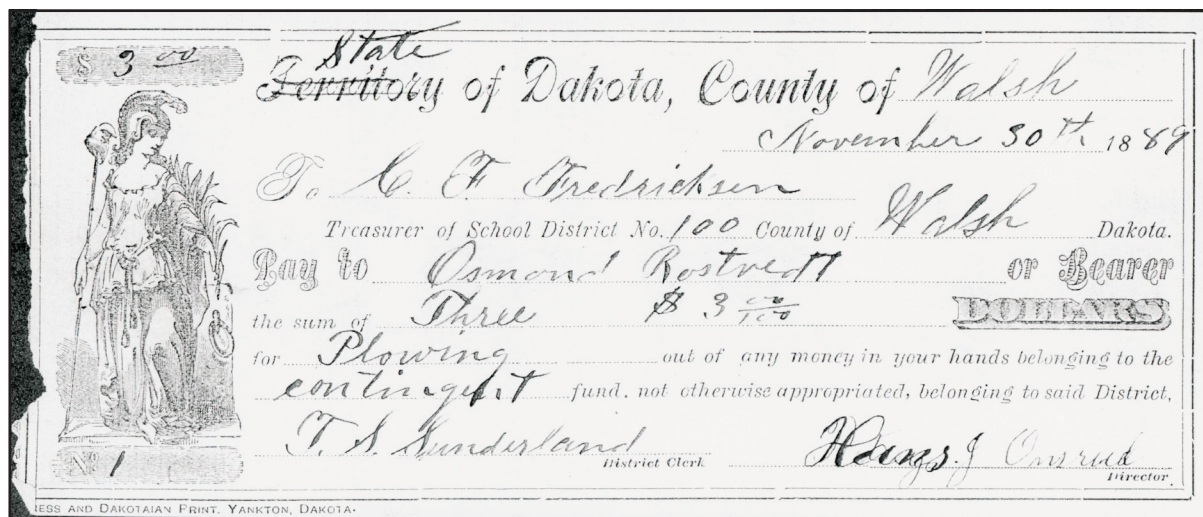 $ 3 00
State
Territory of Dakota, County of Walsh
November 30th 1889
To C. F. Fredricksen
Treasurer of School District No. 100 County of Walsh Dakota.
Pay to Osmond Rostvedt or Bearer
the sum of Three $ 3 00/100 DOLLARS
for Plowing out of any money in your hands belonging to the
contingent fund, not otherwise appropriated, belonging to said District,
T. S. Sunderland Hans. J Onsrud
District Clerk Director
No 1
ESS AND DAKOTAIAN PRINT. YANKTON, DAKOTA.